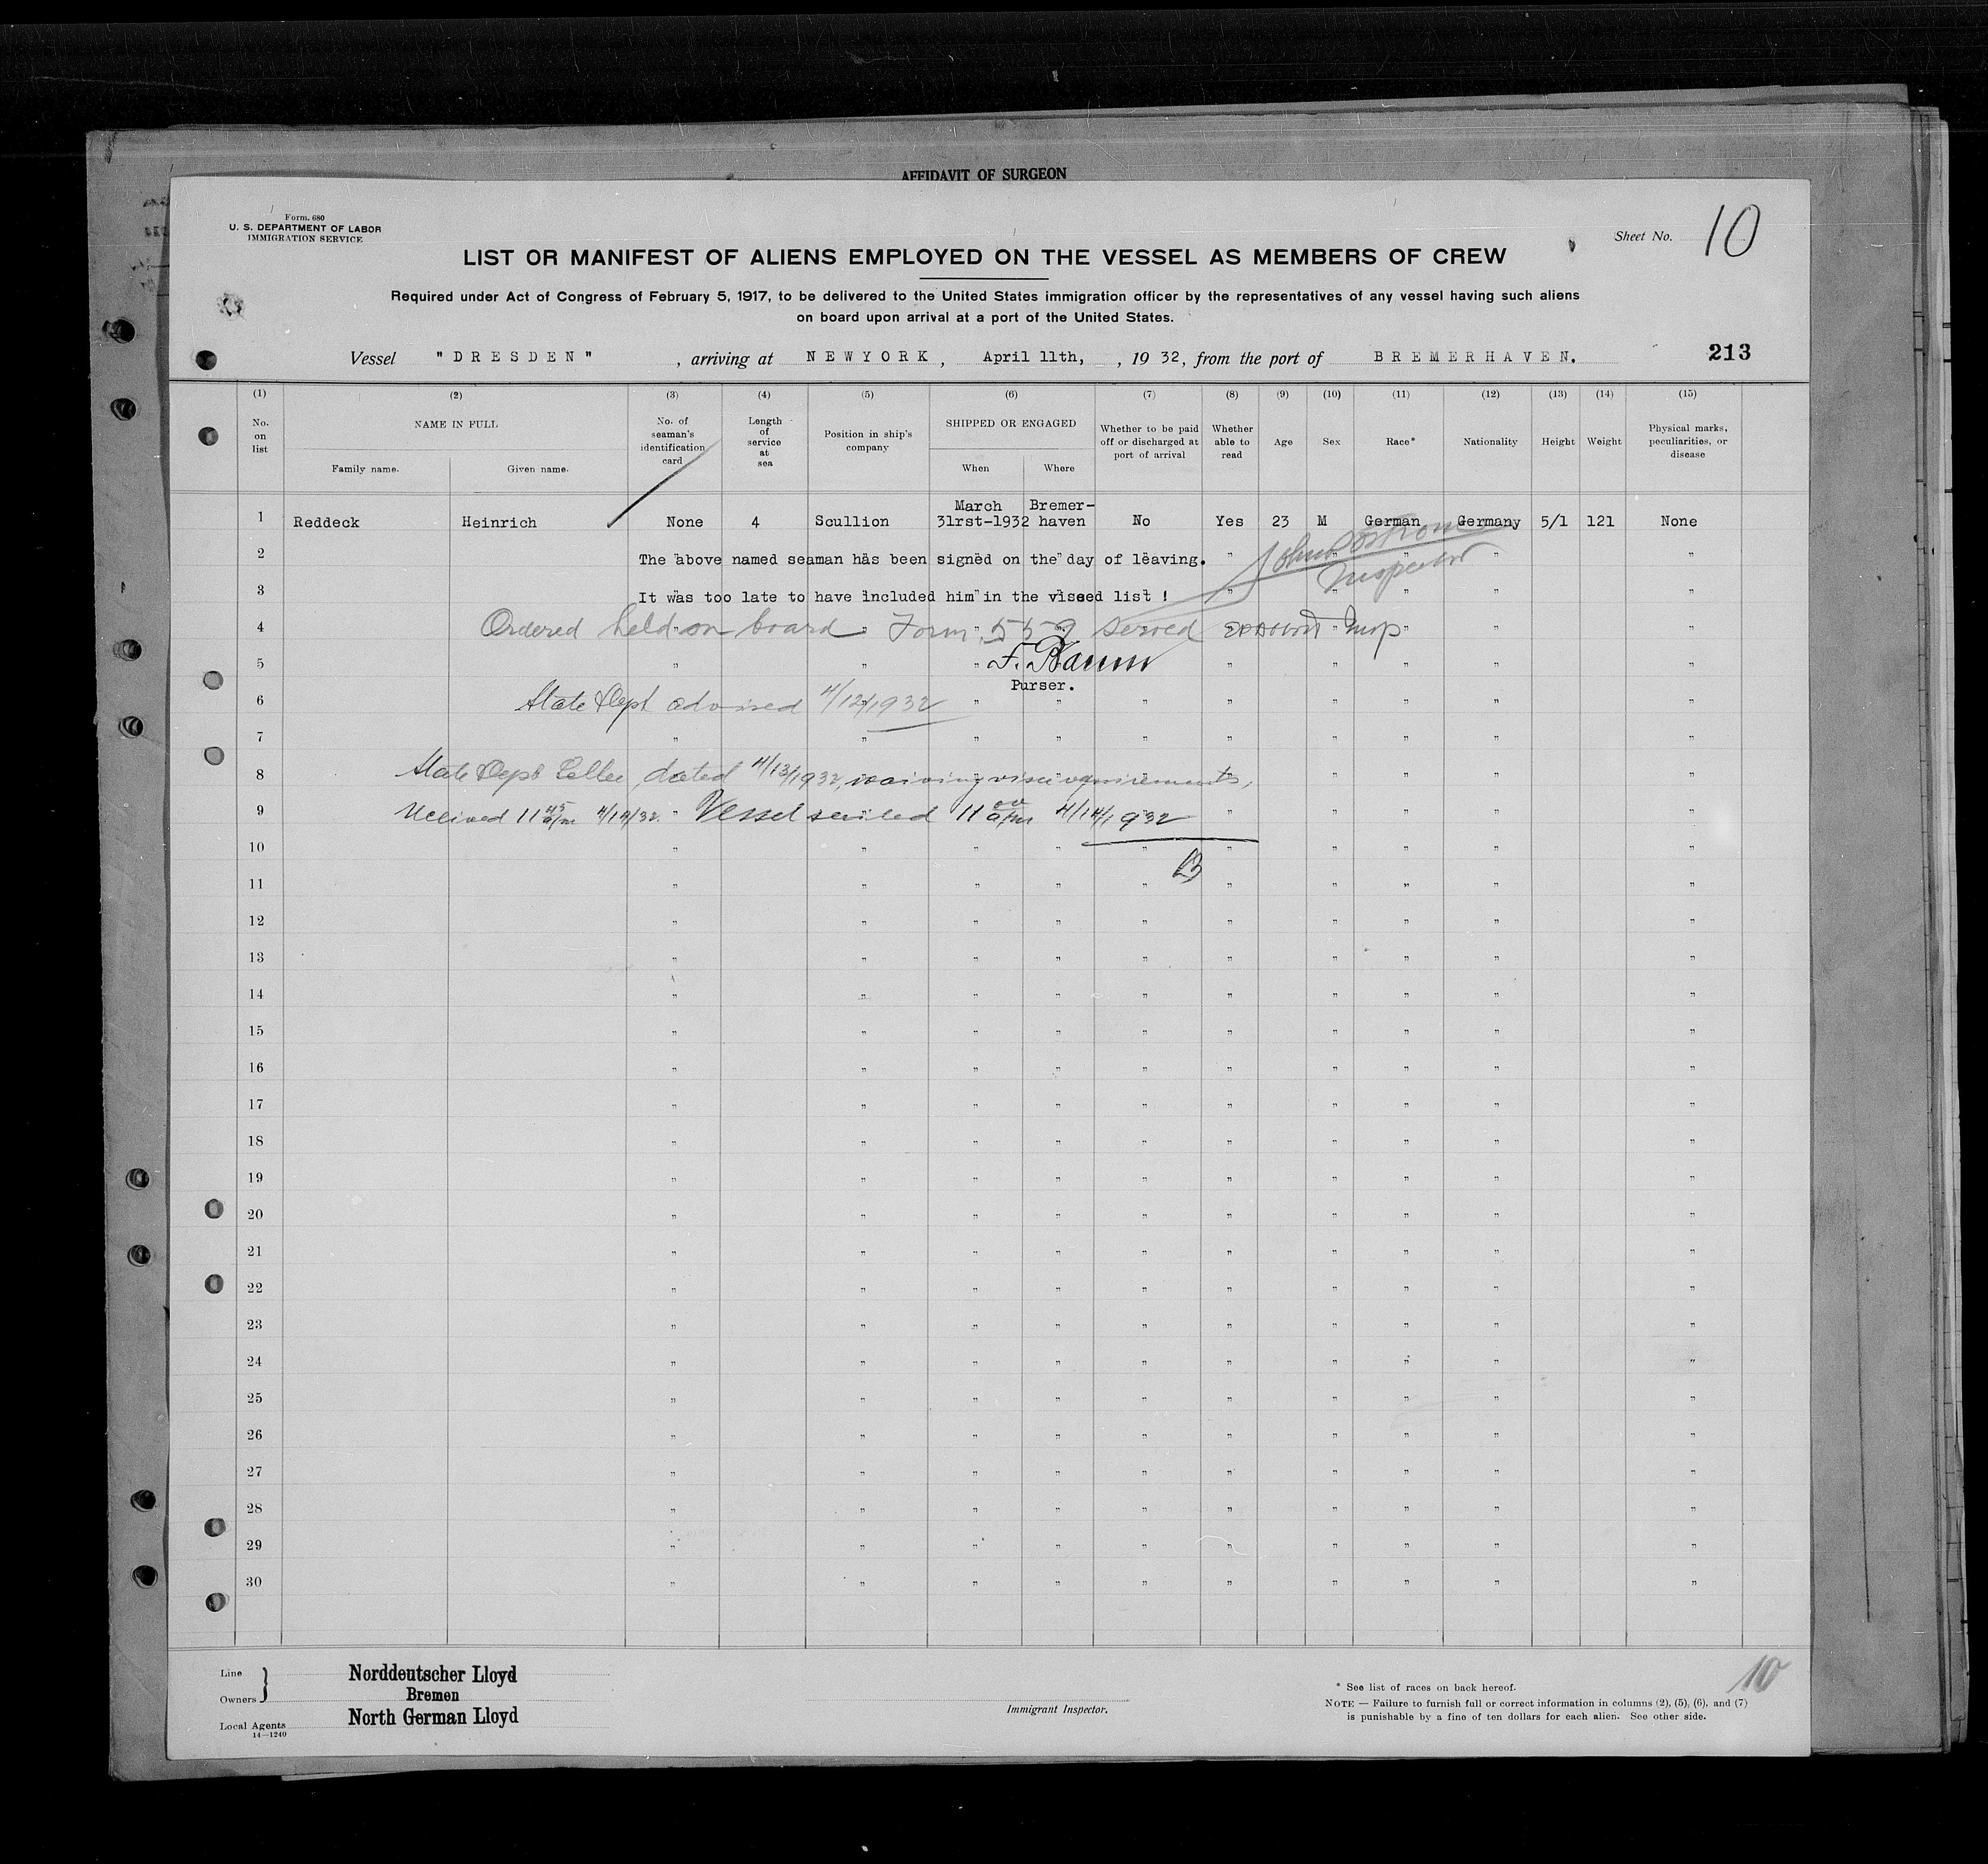 AFFIDAVIT OF SURGEON
Form. 680
U. S. DEPARTMENT OF LABOR
IMMIGRATION SERVICE
Sheet No. 10
LIST OR MANIFEST OF ALIENS EMPLOYED ON THE VESSEL AS MEMBERS OF CREW
Required under Act of Congress of February 5, 1917, to be delivered to the United States immigration officer by the representatives of any vessel having such aliens
on board upon arrival at a port of the United States.
Vessel "DRESDEN", arriving at NEWYORK, April 11th, , 1932, from the port of BREMERHAVEN.
213
(1) (2) (3) (4) (5) (6) (7) (8) (9) (10) (11) (12) (13) (14) (15)
No. on list
NAME IN FULL
Family name. Given name.
No. of seaman's identification card
Length of service at sea
Position in ship's company
SHIPPED OR ENGAGED
When Where
Whether to be paid off or discharged at port of arrival
Whether able to read
Age
Sex
Race*
Nationality
Height
Weight
Physical marks, peculiarities, or disease
1 Reddeck Heinrich None 4 Scullion March 31rst-1932 Bremer-haven No Yes 23 M German Germany 5/1 121 None
2 The above named seaman has been signed on the day of leaving. " " " " "
Inspector
3 It was too late to have included him in the viseed list ! " " " " "
4 Ordered held on board Form 559 served Insp " " "
5 " " " F. Baum " " " " "
Purser.
6 State Dept advised 4/12/1932 " " " " " " " "
7 " " " " " " " " " "
8 State Dept Letter dated 4/13/1932, waiving visa requirements, " " " "
9 Received 11 45 a/m 4/14/32. " Vessel sailed 11 00 a/m 4/14/1932 " " " " "
10 " " " " " " " " " "
11 " " " " " " " " " "
12 " " " " " " " " " "
13 " " " " " " " " " "
14 " " " " " " " " " "
15 " " " " " " " " " "
16 " " " " " " " " " "
17 " " " " " " " " " "
18 " " " " " " " " " "
19 " " " " " " " " " "
20 " " " " " " " " " "
21 " " " " " " " " " "
22 " " " " " " " " " "
23 " " " " " " " " " "
24 " " " " " " " " " "
25 " " " " " " " " " "
26 " " " " " " " " " "
27 " " " " " " " " " "
28 " " " " " " " " " "
29 " " " " " " " " " "
30 " " " " " " " " " "
Line Norddeutscher Lloyd
Owners Bremen
Local Agents North German Lloyd
14—1240
Immigrant Inspector.
10
* See list of races on back hereof.
NOTE — Failure to furnish full or correct information in columns (2), (5), (6), and (7)
is punishable by a fine of ten dollars for each alien. See other side.